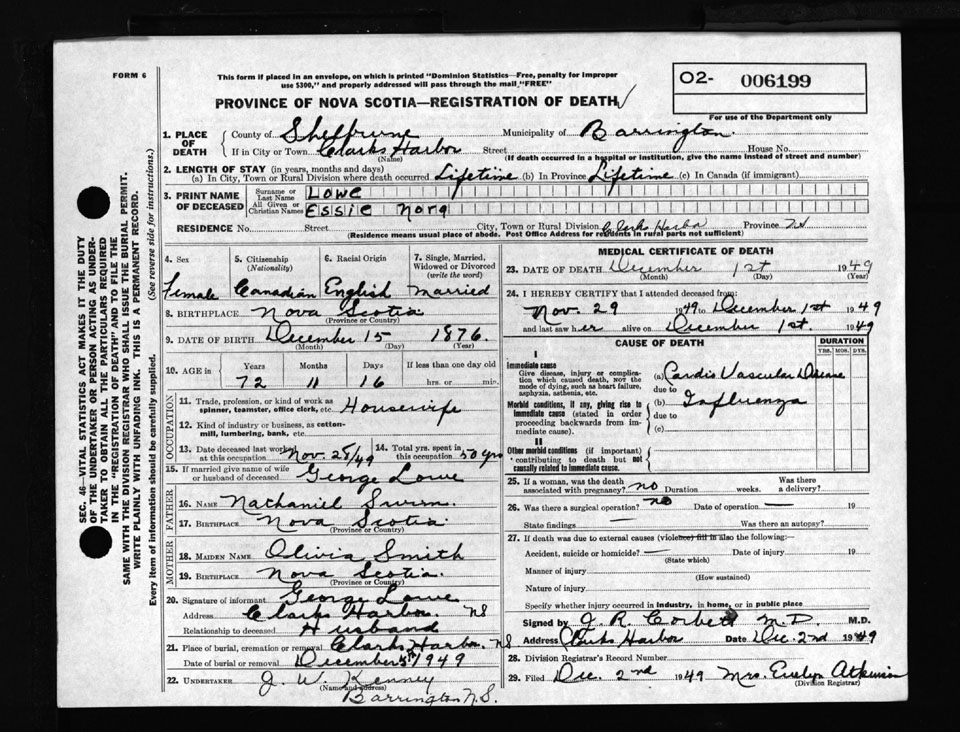 FORM 6
This form if placed in an envelope, on which is printed "Dominion Statistics—Free, penalty for improper
use $300," and properly addressed will pass through the mail "FREE"
PROVINCE OF NOVA SCOTIA—REGISTRATION OF DEATH
O2- 006199
For use of the Department only
SEC. 46—VITAL STATISTICS ACT MAKES IT THE DUTY
OF THE UNDERTAKER OR PERSON ACTING AS UNDER-
TAKER TO OBTAIN ALL THE PARTICULARS REQUIRED
IN THE "REGISTRATION OF DEATH" AND TO FILE THE
SAME WITH THE DIVISION REGISTRAR WHO SHALL ISSUE THE BURIAL PERMIT.
WRITE PLAINLY WITH UNFADING INK. THIS IS A PERMANENT RECORD.
(See reverse side for instructions.)
Every item of information should be carefully supplied.
1. PLACE OF DEATH
County of Shelburne Municipality of Barrington.
If in City or Town Clarks Harbor Street House No.
(Name) (If death occurred in a hospital or institution, give the name instead of street and number)
2. LENGTH OF STAY (in years, months and days)
(a) In City, Town or Rural Division where death occurred Lifetime (b) In Province Lifetime (c) In Canada (if immigrant)
3. PRINT NAME OF DECEASED
Surname or Last Name LOWE
All Given or Christian Names ESSIE Nora
RESIDENCE No. Street City, Town or Rural Division Clark Harbor Province NS
(Residence means usual place of abode. Post Office Address for residents in rural parts not sufficient)
4. Sex 5. Citizenship (Nationality) 6. Racial Origin 7. Single, Married, Widowed or Divorced (write the word)
Female Canadian English Married
8. BIRTHPLACE Nova Scotia
(Province or Country)
9. DATE OF BIRTH December 15 1876.
(Month) (Day) (Year)
10. AGE in Years Months Days If less than one day old
72 11 16 hrs. or min.
OCCUPATION
11. Trade, profession, or kind of work as spinner, teamster, office clerk, etc. Housewife
12. Kind of industry or business, as cotton-mill, lumbering, bank, etc.
13. Date deceased last worked at this occupation Nov. 28/49 14. Total yrs. spent in this occupation 50 yrs
15. If married give name of wife or husband of deceased George Lowe
FATHER
16. NAME Nathaniel Swim
17. BIRTHPLACE Nova Scotia.
(Province or Country)
MOTHER
18. MAIDEN NAME Olivia Smith
19. BIRTHPLACE Nova Scotia.
(Province or Country)
20. Signature of informant George Lowe
Address Clarks Harbor. NS
Relationship to deceased Husband
21. Place of burial, cremation or removal Clarks Harbor. NS
Date of burial or removal December 1949
22. UNDERTAKER J. W. Kenney
(Name and address)
Barrington N.S.
MEDICAL CERTIFICATE OF DEATH
23. DATE OF DEATH December 1st 1949
(Month) (Day)
24. I HEREBY CERTIFY that I attended deceased from:
Nov. 29 1949 to December 1st 1949
and last saw her alive on December 1st 1949
CAUSE OF DEATH DURATION
YRS. MOS. DYS.
I
Immediate cause
Give disease, injury or complication which caused death, NOT the mode of dying, such as heart failure, asphyxia, asthenia, etc.
(a) Cardio Vascular Disease
due to
Morbid conditions, if any, giving rise to immediate cause (stated in order proceeding backwards from immediate cause).
(b) Influenza
due to
(c)
II
Other morbid conditions (if important) contributing to death but not causally related to immediate cause.
25. If a woman, was the death associated with pregnancy? no Duration weeks. Was there a delivery?
26. Was there a surgical operation? no Date of operation — 19
State findings — Was there an autopsy?
27. If death was due to external causes (violence) fill in also the following:
Accident, suicide or homicide? — Date of injury 19
(State which)
Manner of injury
(How sustained)
Nature of injury
Specify whether injury occurred in industry, in home, or in public place
Signed by J. R. Corbett M.D. M.D.
Address Clarks Harbor Date Dec. 2nd 1949
28. Division Registrar's Record Number
29. Filed Dec. 2nd 1949 Mrs. Evelyn Atkinson
(Division Registrar)